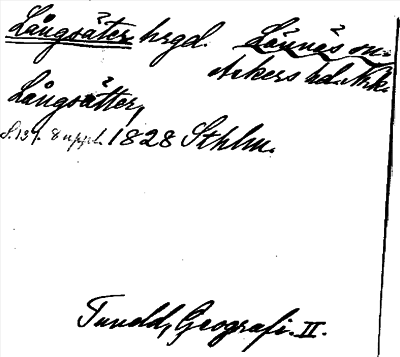 Långsäter hrgd. Lännäs sn.
Askers hd. Nrke.
Långsätter,
S. 137. 8 uppl. 1828 Sthlm.
Tuneld, Geografi. II.